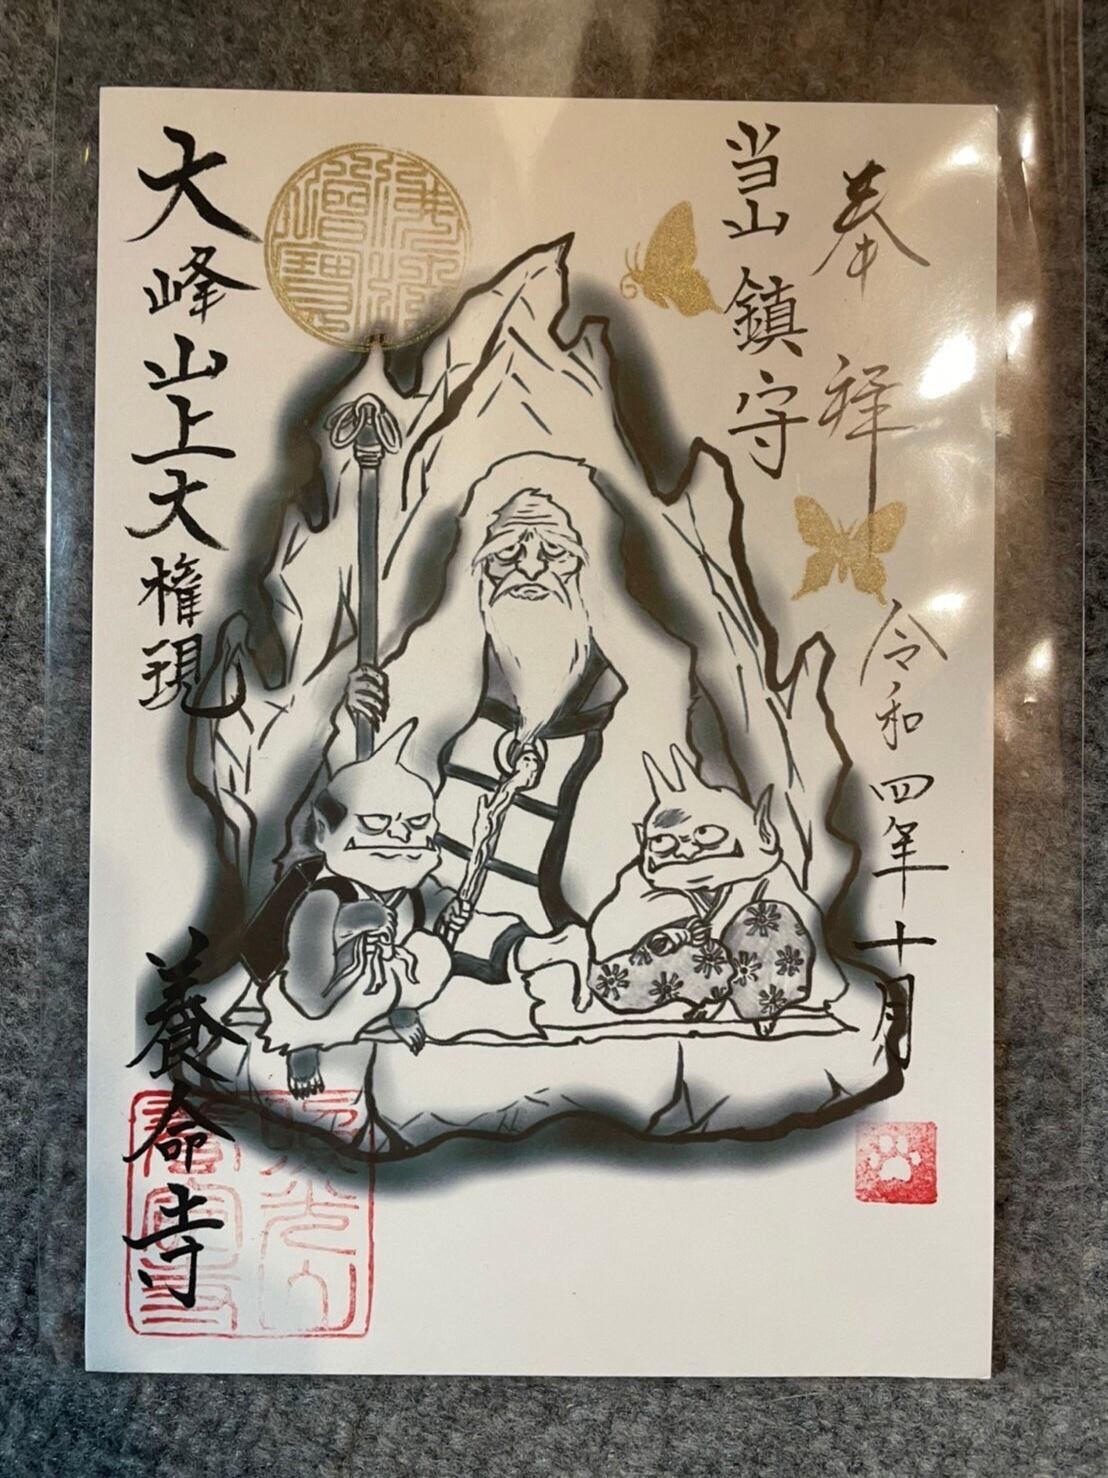 奉拝
令和四年十月
当山鎮守
大峰山上大権現
養命寺
佛法僧寶